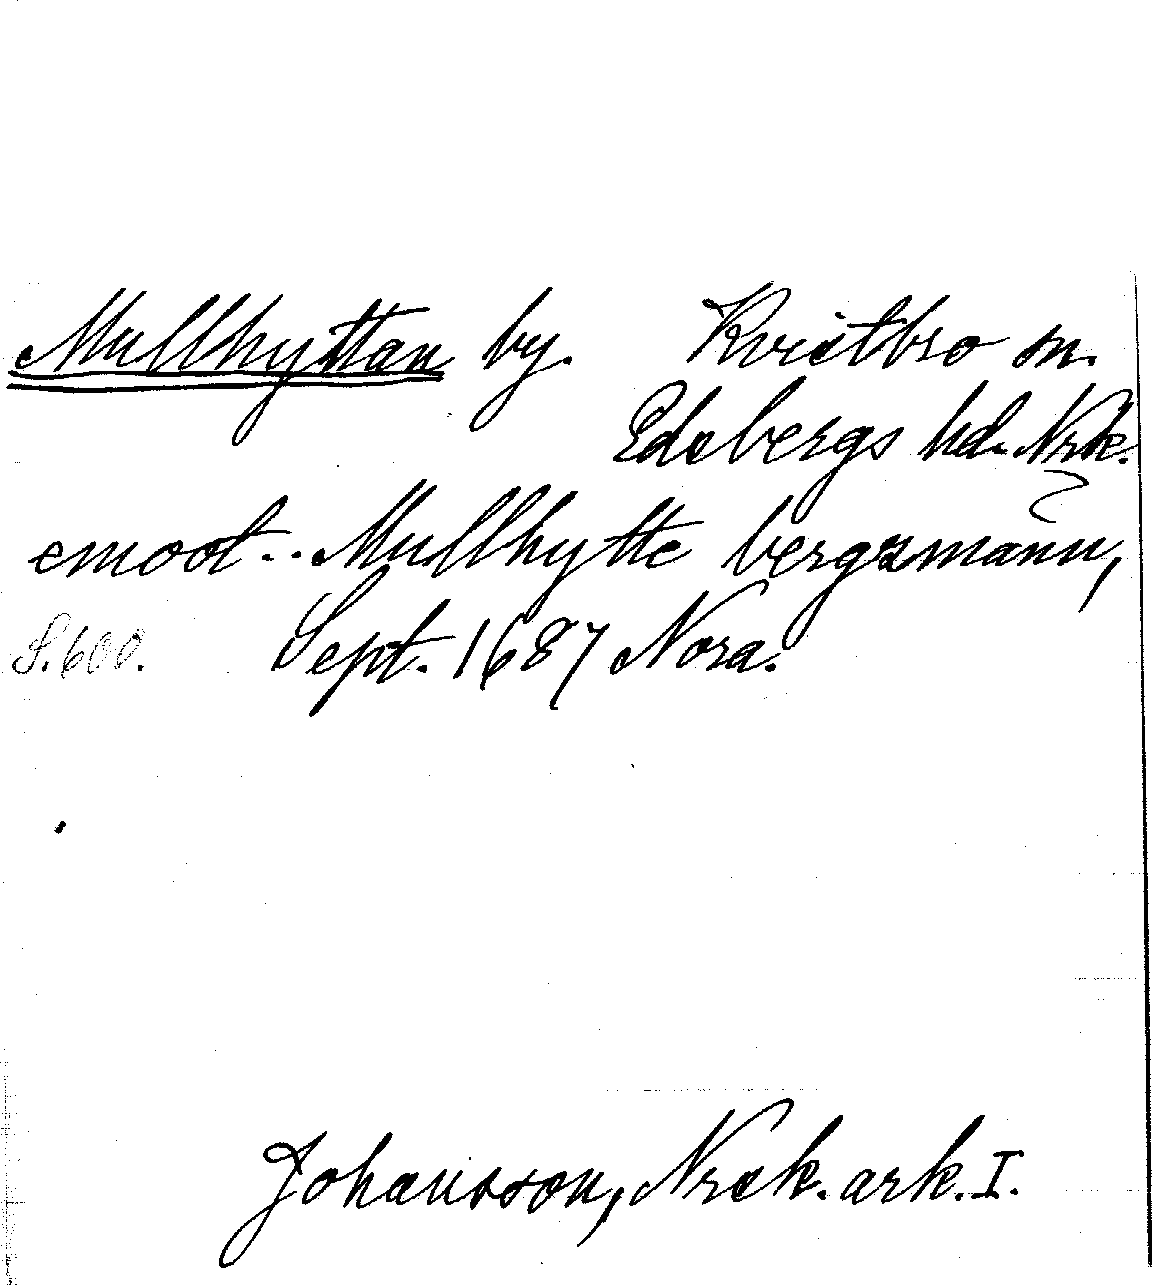 Mullhyttan by. Kvistbro sn.
Edsbergs hd. Nrk.
emoot.. Mullhytte bergzmänn,
S. 600. Sept. 1687 Nora.
Johansson, Nrek. ark. I.